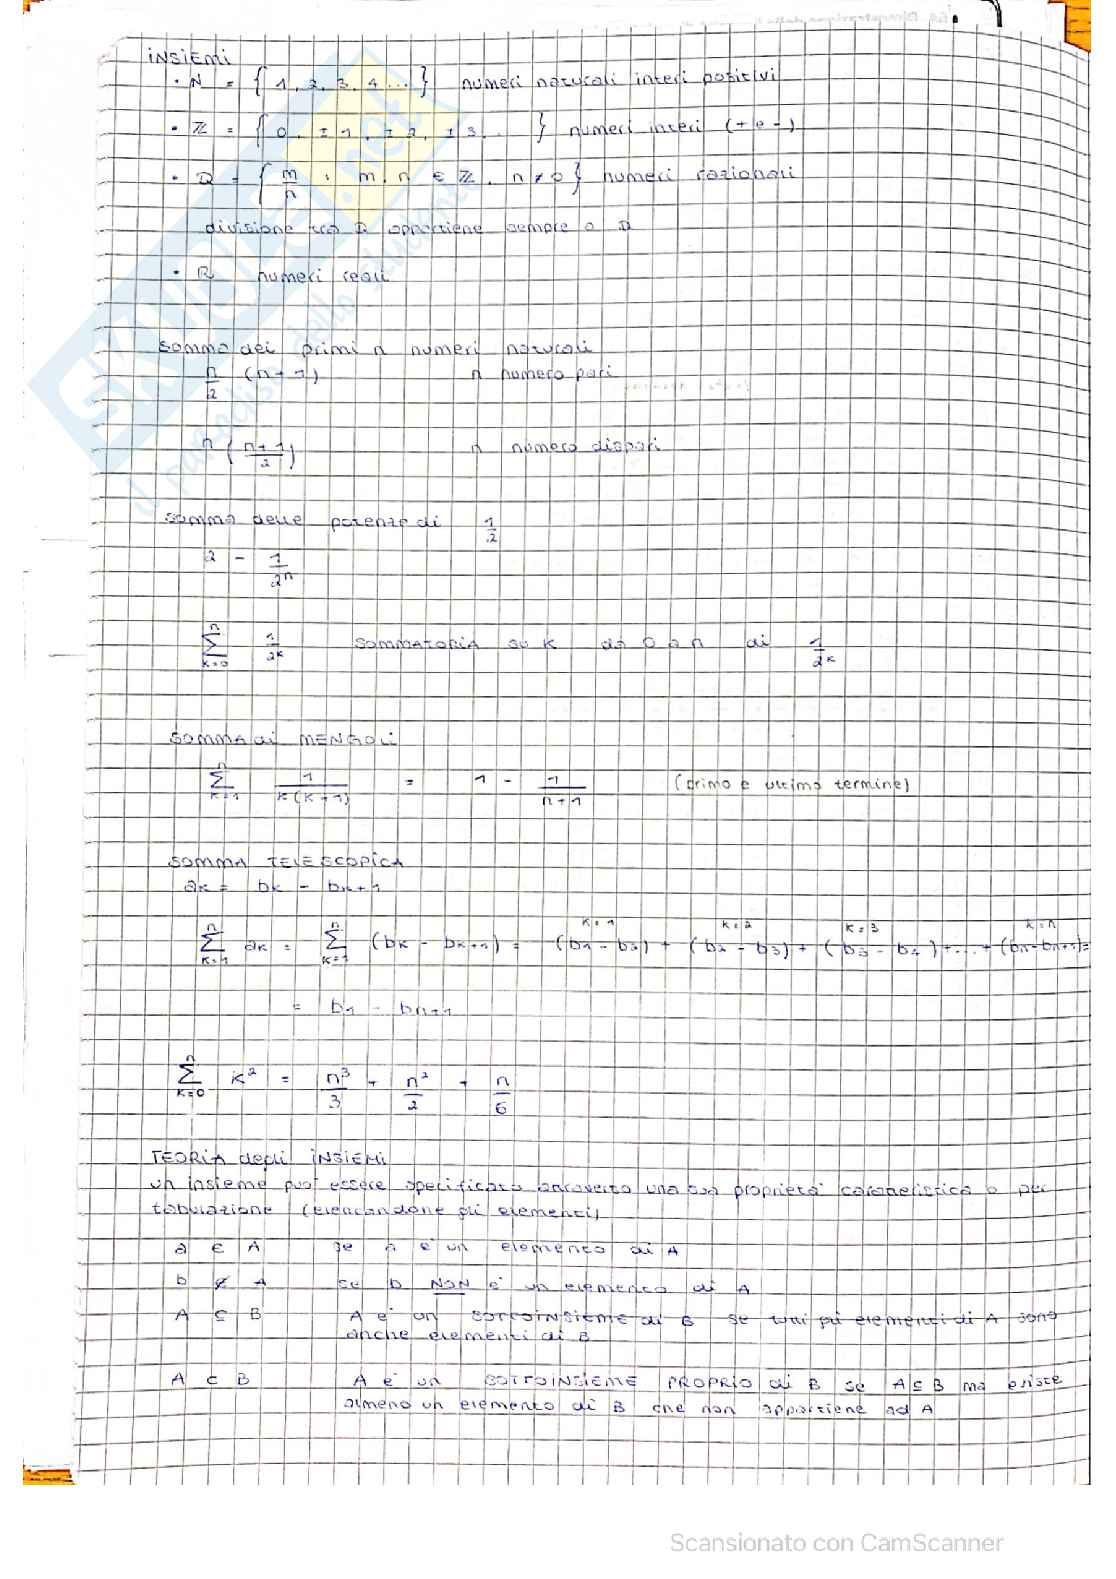 INSIEMI
• N = { 1, 2, 3, 4 ... } numeri naturali interi positivi
• ℤ = { 0, ±1, ±2, ±3, ... } numeri interi (+ e -)
• Q = { m/n : m, n ∈ ℤ, n ≠ 0 } numeri razionali
divisione tra Q appartiene sempre a Q
• R numeri reali
somma dei primi n numeri naturali
n/2 (n+1) n numero pari
n ( n+1/2 ) n numero dispari
somma delle potenze di 1/2
2 - 1/2^n
∑ k=0 n 1/2^k SOMMATORIA su K da 0 a n di 1/2^k
SOMMA di MENGOLI
∑ k=1 n 1/k(k+1) = 1 - 1/n+1 (primo e ultimo termine)
SOMMA TELESCOPICA
ak = bk - bk+1
k=1 k=2 k=3 k=n
∑ k=1 n ak = ∑ k=1 n (bk - bk+1) = (b1 - b2) + (b2 - b3) + (b3 - b4) + ... + (bn - bn+1) =
= b1 - bn+1
∑ k=0 n k² = n³/3 + n²/2 + n/6
TEORIA degli INSIEMI
un insieme puo' essere specificato attraverso una sua proprieta' caratteristica o per
tabulazione (elencandone gli elementi)
a ∈ A se a e' un elemento di A
b ∉ A se b NON e' un elemento di A
A ⊆ B A e' un SOTTOINSIEME di B se tutti gli elementi di A sono
anche elementi di B
A ⊂ B A e' un SOTTOINSIEME PROPRIO di B se A ⊆ B ma esiste
almeno un elemento di B che non appartiene ad A
Scansionato con CamScanner